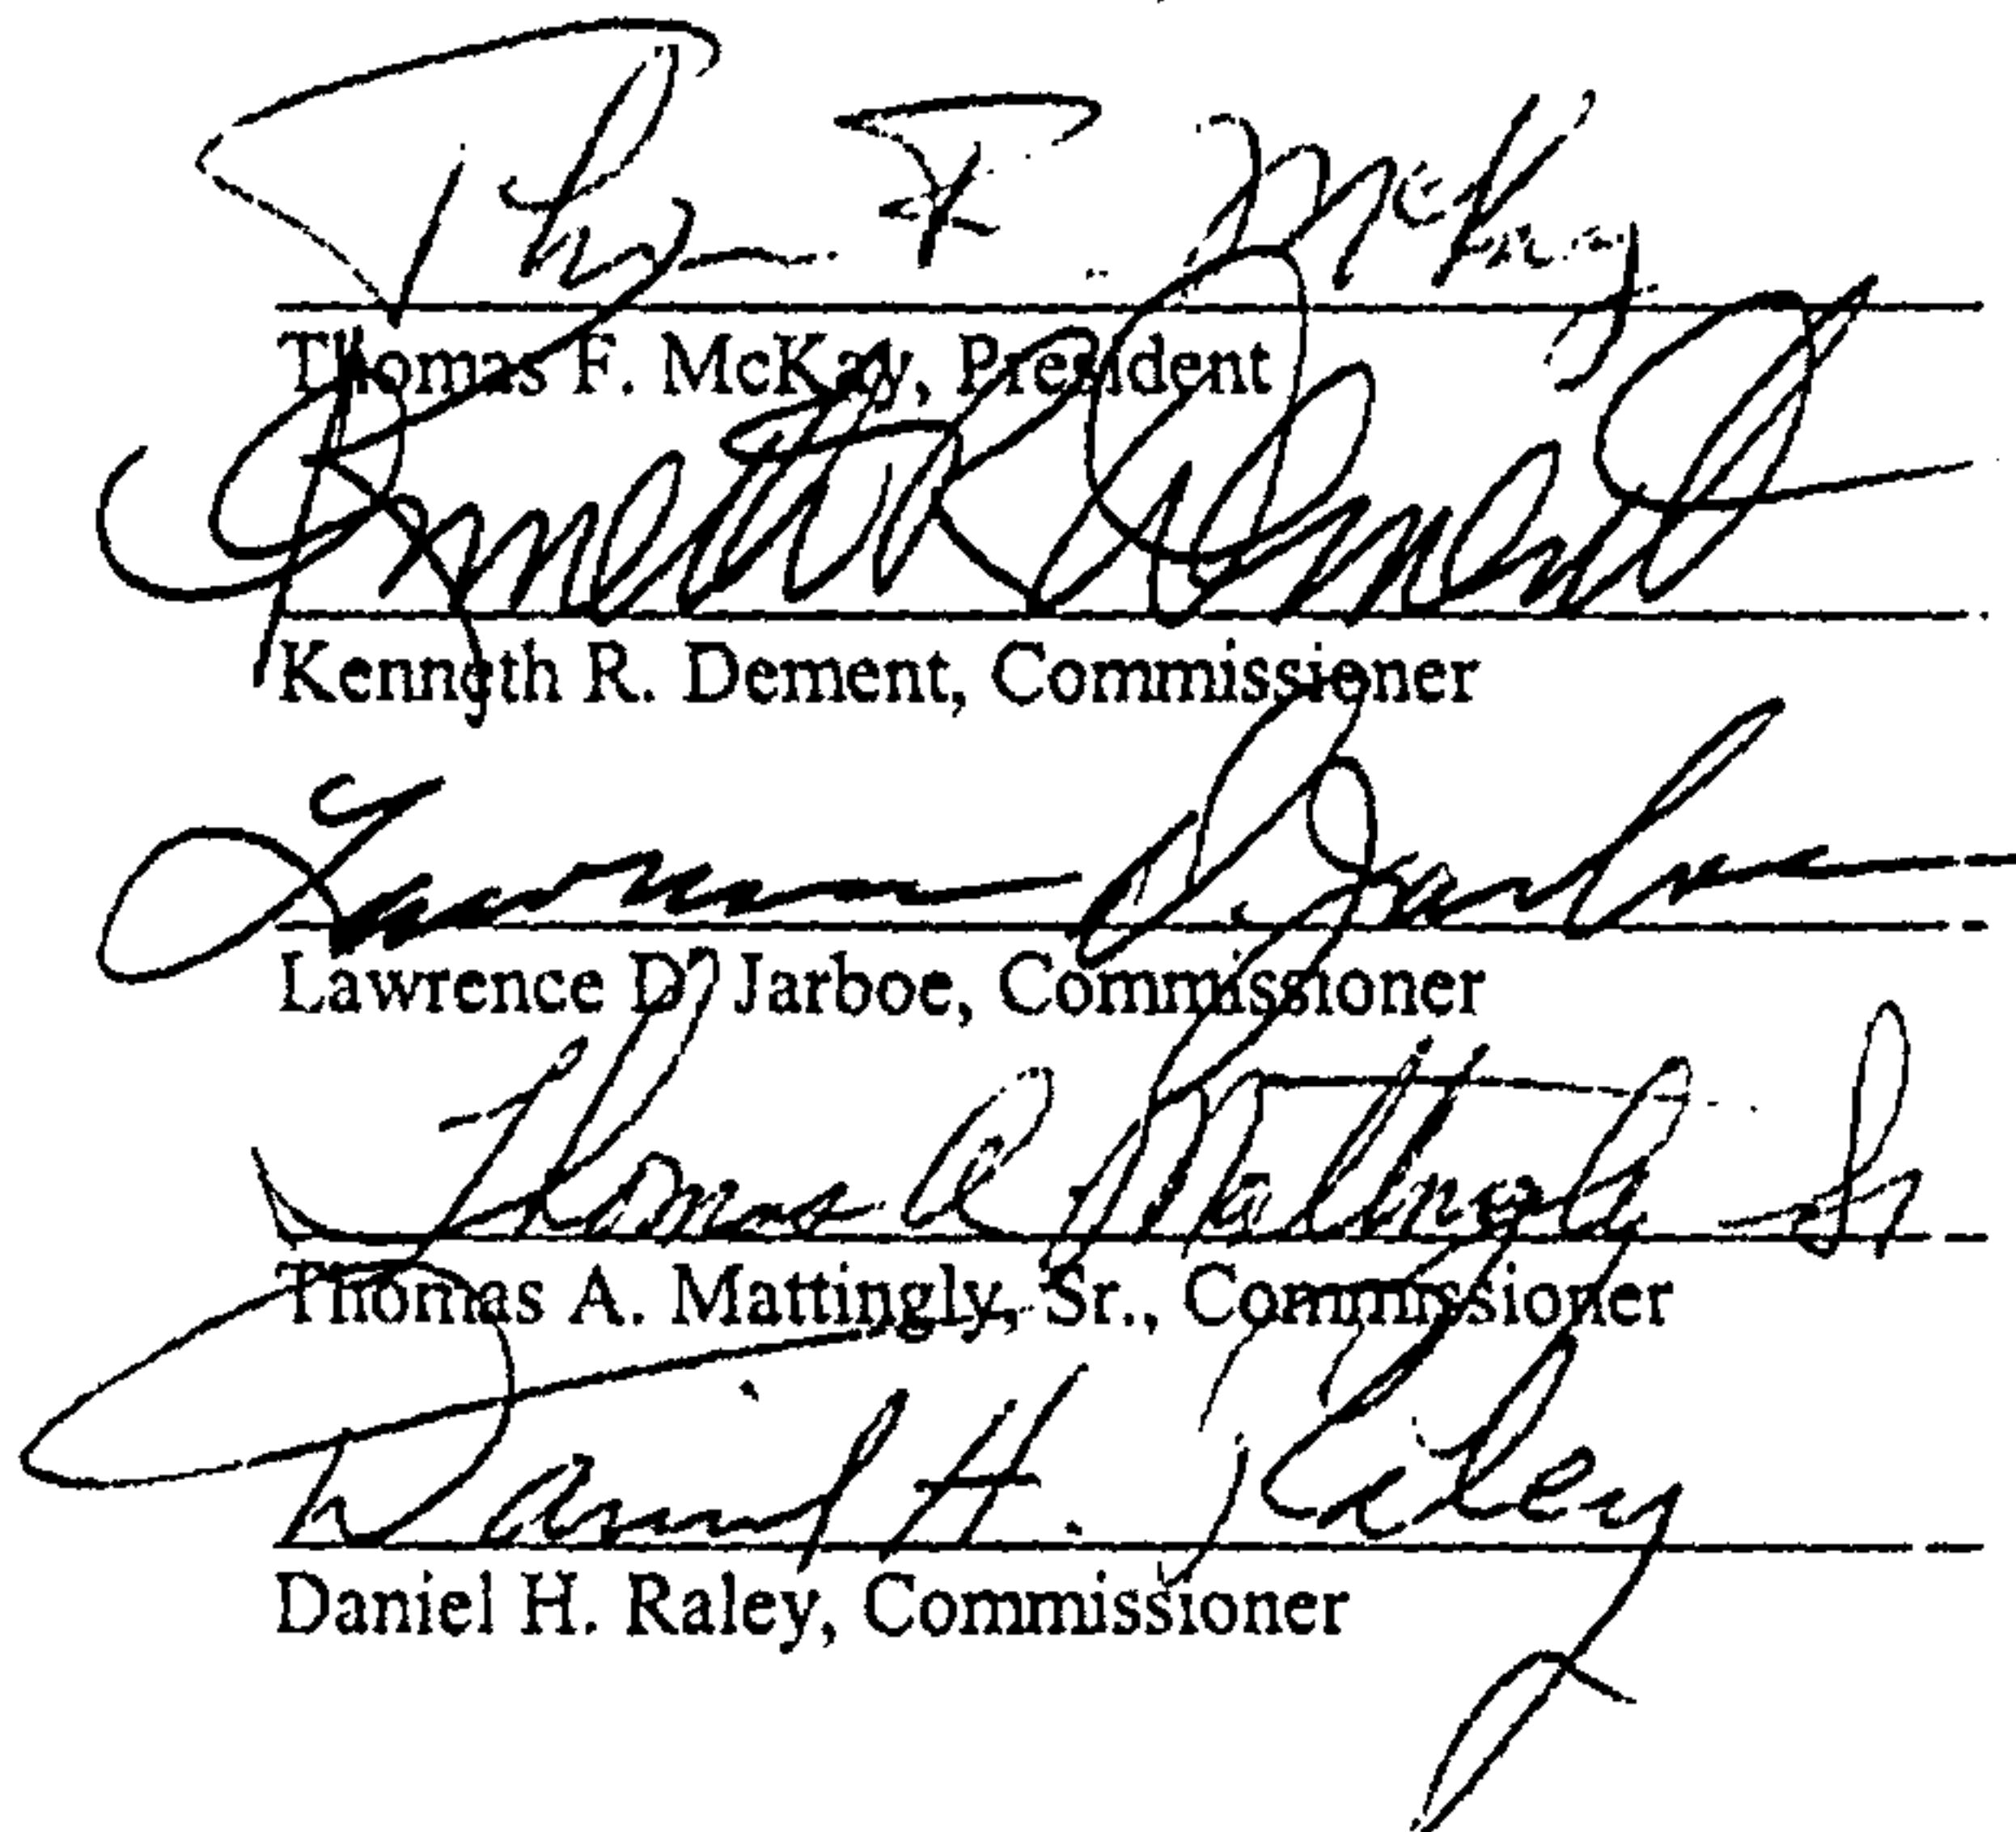 Thos F. McKay
Thomas F. McKay, President
Kenneth R. Dement
Kenneth R. Dement, Commissioner
Lawrence D. Jarboe
Lawrence D. Jarboe, Commissioner
Thomas A Mattingly Sr
Thomas A. Mattingly, Sr., Commissioner
Daniel H. Raley
Daniel H. Raley, Commissioner